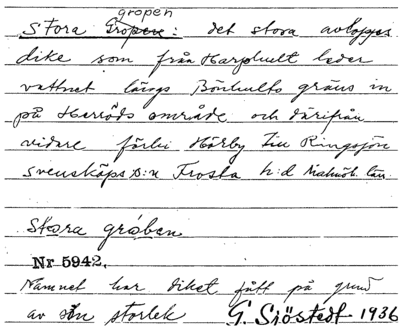 gropen
Stora Gropen: det stora avlopps
dike som från Harphult leder
vattnet längs Bönhults gräns in
på Herröds område och därifrån
vidare förbi Hörby till Ringsjön
svensköps s:n Frosta h:d Malmöh. län.
Stora gråben
Nr 5942.
Namnet har diket fått på grund
av sin storlek G. Sjöstedt 1936